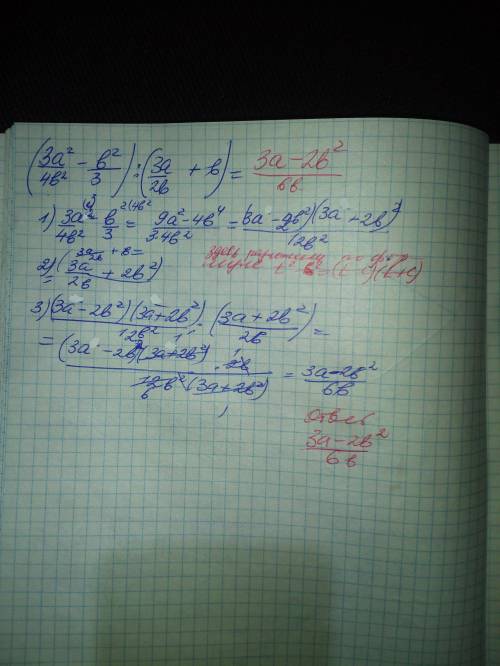 (3a²/4b² - b²/3) : (3a/2b + b) = 3a-2b²/6b
1) 3a²/4b² - b²/3 = 9a²-4b⁴/3·4b² = (3a-2b²)(3a+2b²)/12b²
3a/2b + b =
2) = (3a+2b²/2b)
3) (3a-2b²)(3a+2b²)/12b² : (3a+2b²/2b) =
= (3a-2b²)(3a+2b²)·2b/12b²(3a+2b²) = 3a-2b²/6b
Ответ
3a-2b²/6b